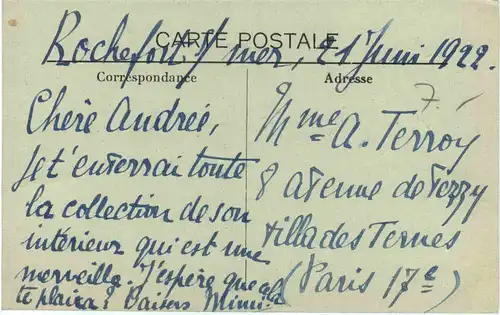 CARTE POSTALE
Rochefort s/ mer, 21 Juin 1922.
Correspondance
Chère Andrée,
Je t'enverrai toute
la collection de son
intérieur qui est une
merveille. J'espère que cela
te plaira? Baisers Mimi
Adresse
7.-
Mme A. Terroy
8 avenue de Verzy
Villa des Ternes
(Paris 17e)